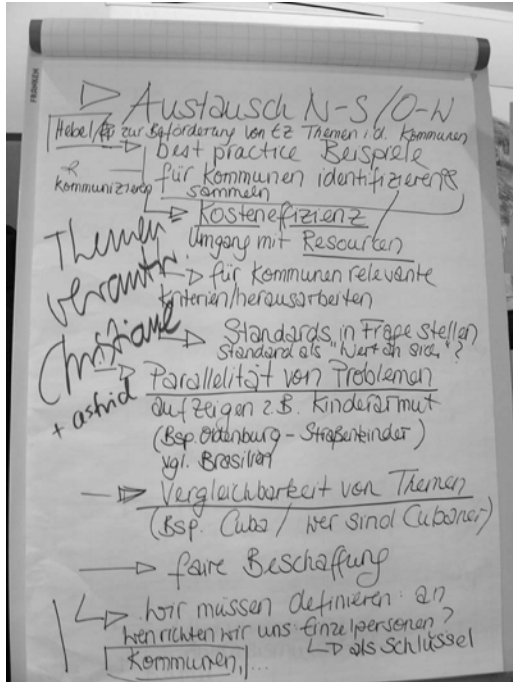 FRANKEN
Austausch N-S/O-W
Hebel/ zur Beförderung von EZ Themen i.d. Kommunen
best practice Beispiele
& kommunizieren
für Kommunen identifizieren &
sammeln
Kosteneffizienz
Themen=
Umgang mit Resourcen
verantw.
für Kommunen relevante
Kriterien/herausarbeiten
Christiane
+ astrid
Standards in Frage stellen
Standard als "Wert an sich"?
Parallelität von Problemen
aufzeigen z.B. Kinderarmut
(Bsp. Oldenburg - Straßenkinder)
vgl. Brasilien
Vergleichbarkeit von Themen
(Bsp. Cuba / wer sind Cubaner)
faire Beschaffung
wir müssen definieren: an
wen richten wir uns Einzelpersonen?
Kommunen, ...
als Schlüssel